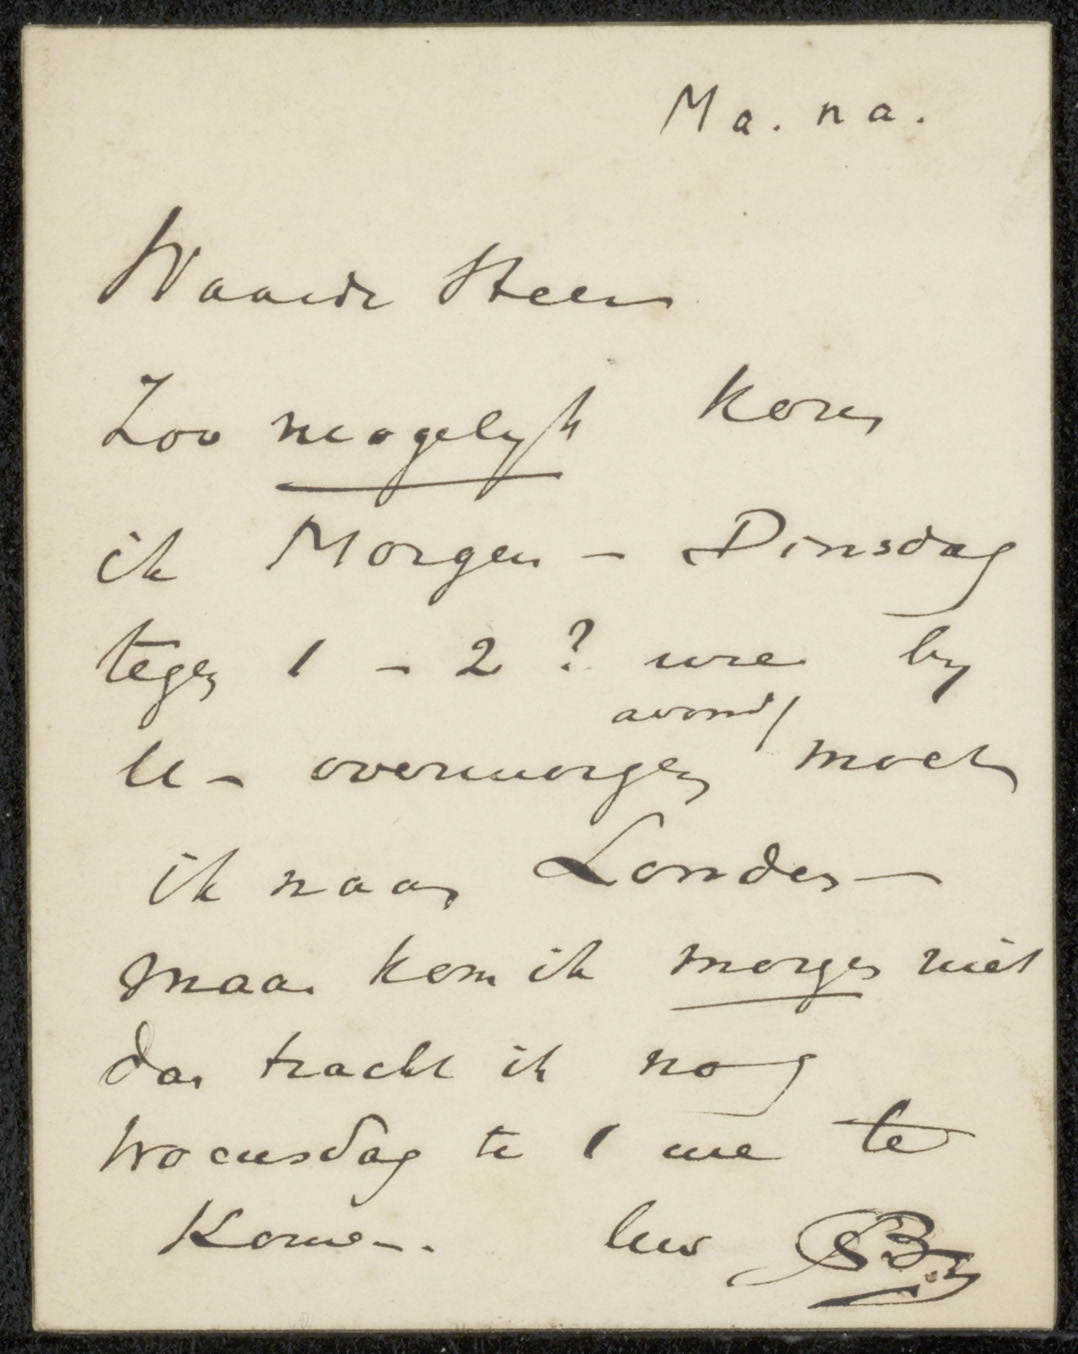 Ma. na.
Waarde Steen
Zoo mogelijk kom
ik Morgen - Dinsdag
tegen 1 - 2 ? ure by
avond/
U - overmorgen moet
ik naar Londen -
maar kom ik morgen niet
dan tracht ik nog
Woensdag te 1 ure te
Komen. Uw